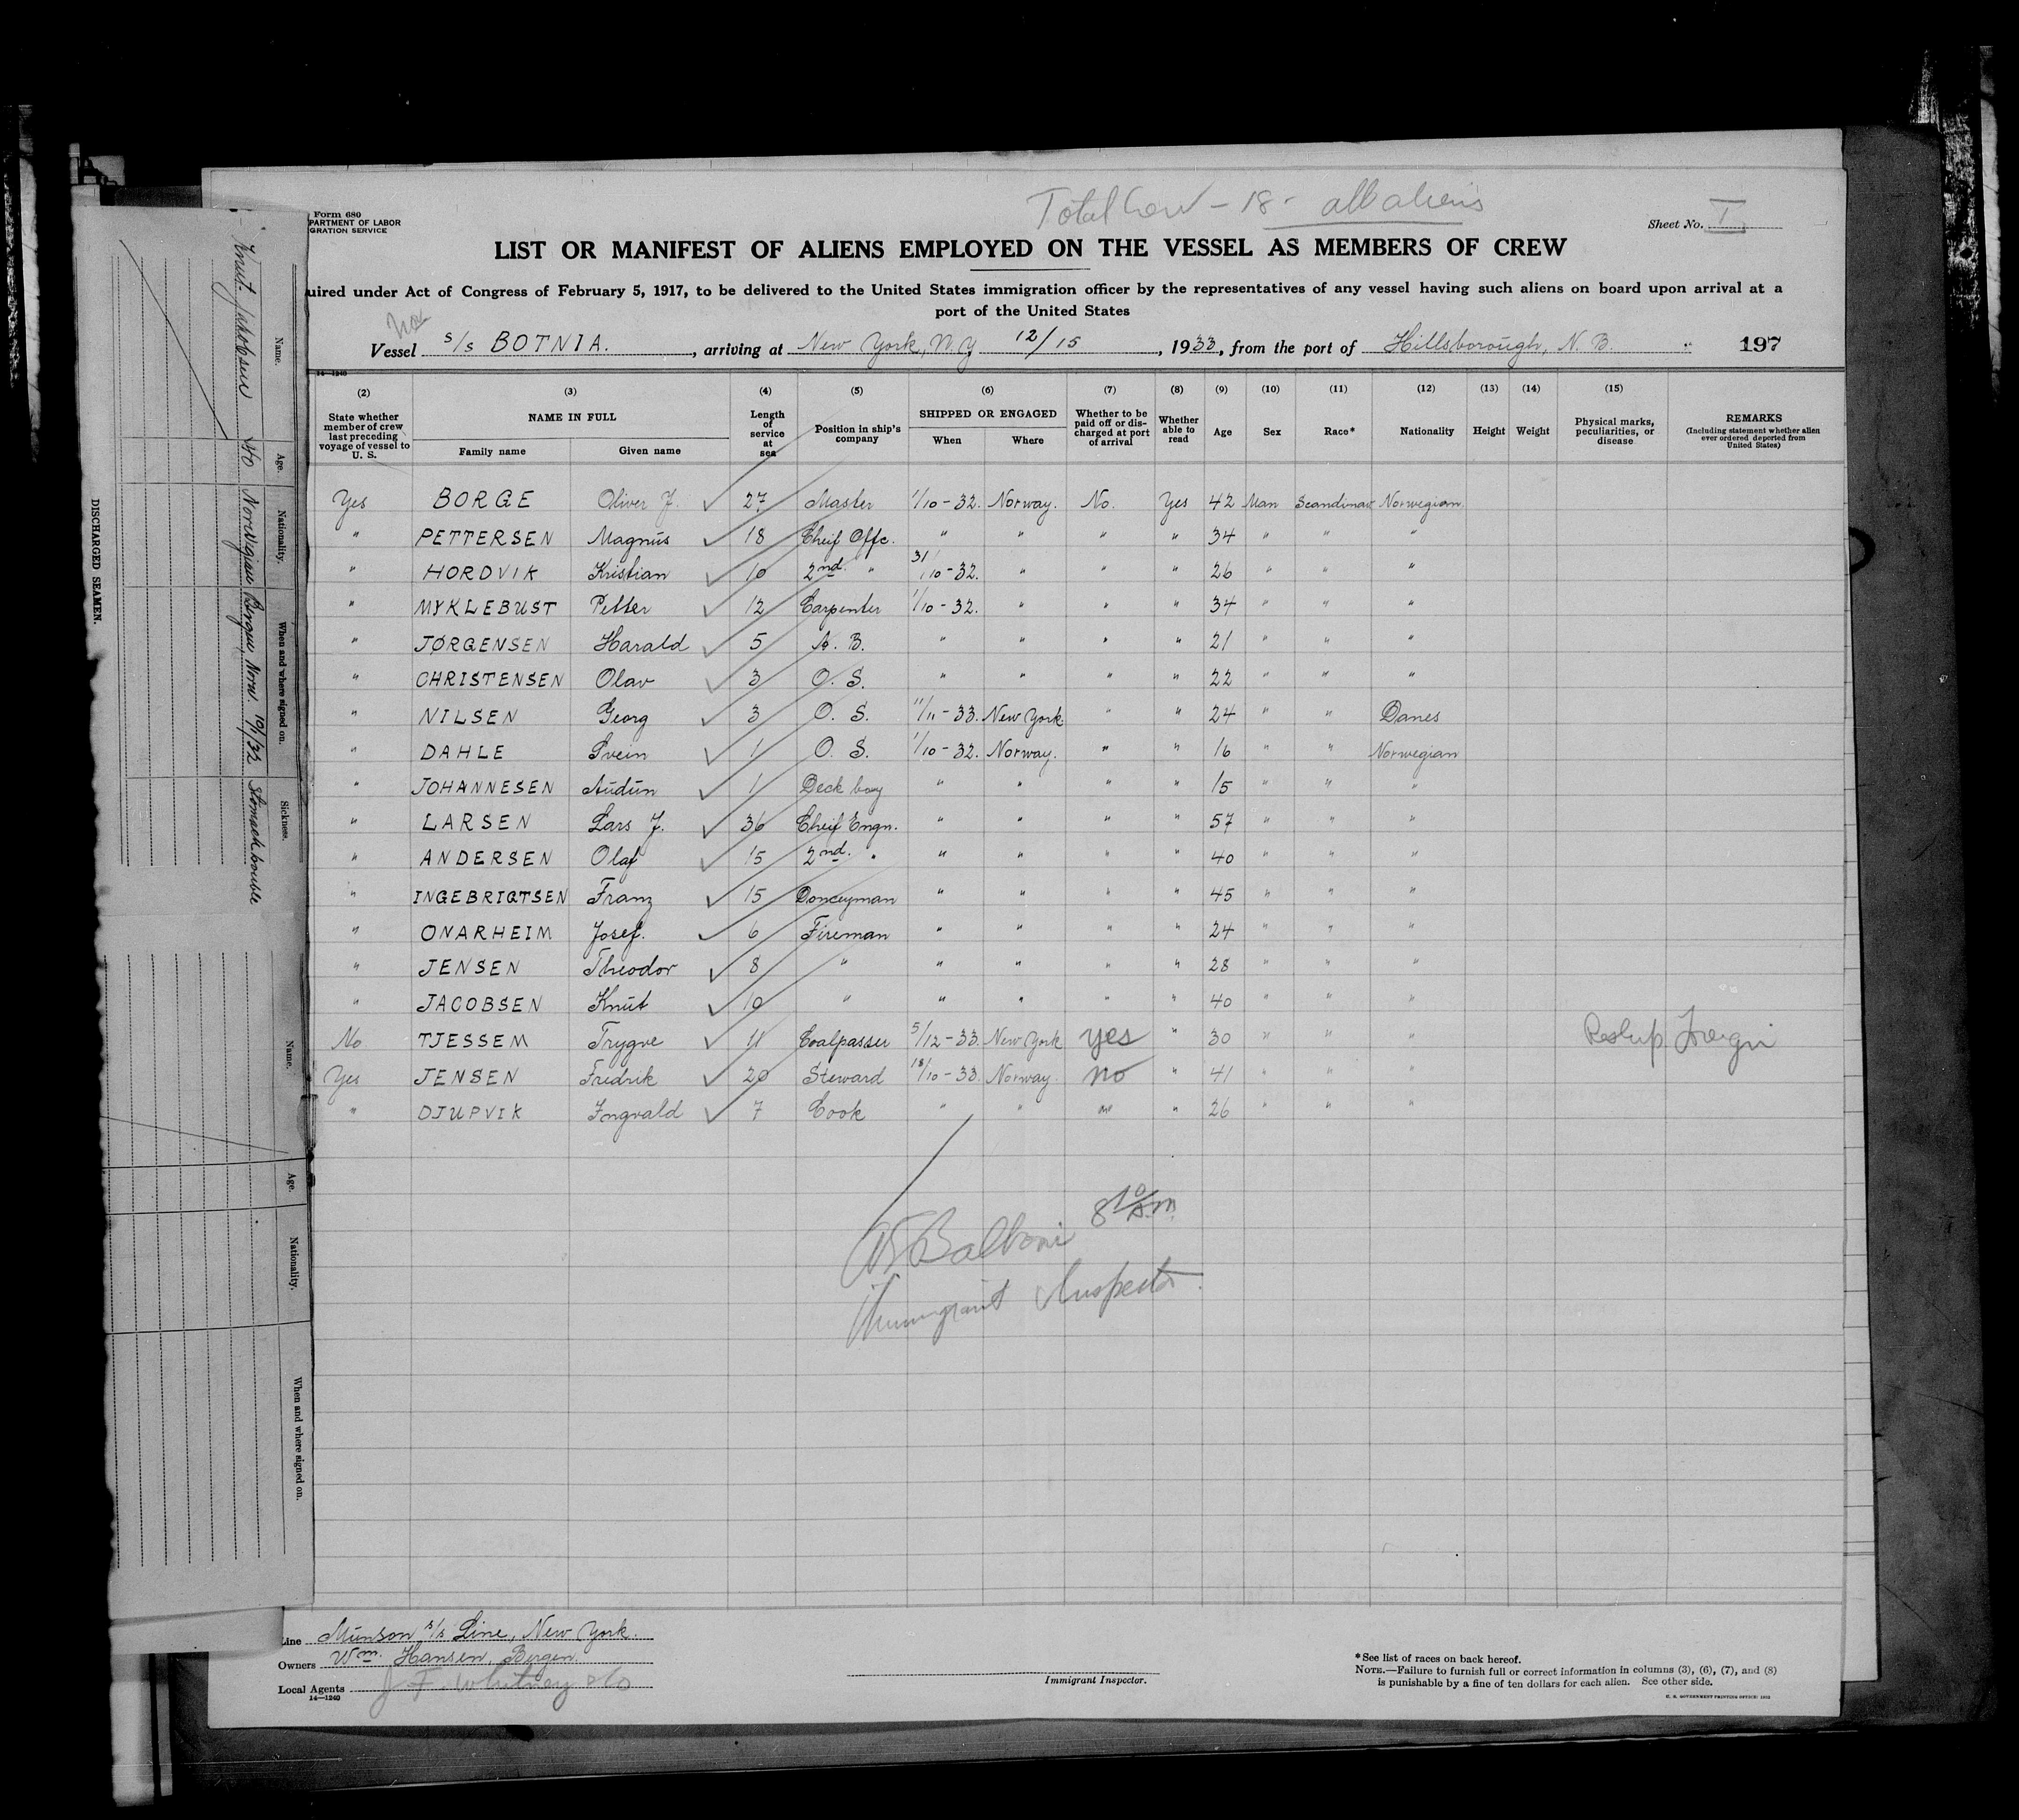 Total Crew - 18 - all aliens
Form 680
PARTMENT OF LABOR
GRATION SERVICE
Sheet No. I
LIST OR MANIFEST OF ALIENS EMPLOYED ON THE VESSEL AS MEMBERS OF CREW
uired under Act of Congress of February 5, 1917, to be delivered to the United States immigration officer by the representatives of any vessel having such aliens on board upon arrival at a
port of the United States
Vessel S/s BOTNIA. , arriving at New York, N.Y 12/15 , 1933, from the port of Hillsborough, N. B. 197
14—1240
(2) (3) (4) (5) (6) (7) (8) (9) (10) (11) (12) (13) (14) (15)
State whether member of crew last preceding voyage of vessel to U. S. NAME IN FULL Family name Given name Length of service at sea Position in ship's company SHIPPED OR ENGAGED When Where Whether to be paid off or discharged at port of arrival Whether able to read Age Sex Race* Nationality Height Weight Physical marks, peculiarities, or disease REMARKS (Including statement whether alien ever ordered deported from United States)
Yes BORGE Oliver J. ✓ 27 Master 1/10-32. Norway. No. Yes 42 Man Scandinav Norwegian
" PETTERSEN Magnus ✓ 18 Cheif Offc. " " " " 34 " " "
" HORDVIK Kristian ✓ 10 2nd. " 31/10-32. " " " 26 " " "
" MYKLEBUST Petter ✓ 12 Carpenter 1/10-32. " " " 34 " " "
" JØRGENSEN Harald ✓ 5 A. B. " " " " 21 " " "
" CHRISTENSEN Olav ✓ 3 O. S. " " " " 22 " " "
" NILSEN Georg ✓ 3 O. S. 11/11-33. New York " " 24 " " Danes
" DAHLE Svein ✓ 1 O. S. 1/10-32. Norway. " " 16 " " Norwegian
" JOHANNESEN Audun ✓ 1 Deck boy " " " " 15 " " "
" LARSEN Lars J. ✓ 36 Cheif Engn. " " " " 57 " " "
" ANDERSEN Olaf ✓ 15 2nd. " " " " " 40 " " "
" INGEBRIGTSEN Franz ✓ 15 Donceyman " " " " 45 " " "
" ONARHEIM Josef. ✓ 6 Fireman " " " " 24 " " "
" JENSEN Theodor ✓ 8 " " " " " 28 " " "
" JACOBSEN Knut ✓ 10 " " " " " 40 " " "
No TJESSEM Trygve ✓ 11 Coalpasser 5/12-33. New York yes " 30 " " "
Yes JENSEN Fredrik ✓ 20 Steward 18/10-33. Norway. no " 41 " " "
" DJUPVIK Ingvald ✓ 7 Cook " " " " 26 " " "
8 10/A.m
Balboni
Immigrant Inspector.
Line Munson S/s Line, New York.
Owners Wm. Hansen, Bergen.
Local Agents J F. Whitney & Co
14—1240
Immigrant Inspector.
*See list of races on back hereof.
NOTE.—Failure to furnish full or correct information in columns (3), (6), (7), and (8)
is punishable by a fine of ten dollars for each alien. See other side.
U. S. GOVERNMENT PRINTING OFFICE: 1932
DISCHARGED SEAMEN.
Name. Age. Nationality. When and where signed on. Sickness.
Knut Jakobsen 40 Norwegian Bergen, Norw. 10/32 Stomach trouble
Name. Age. Nationality. When and where signed on.